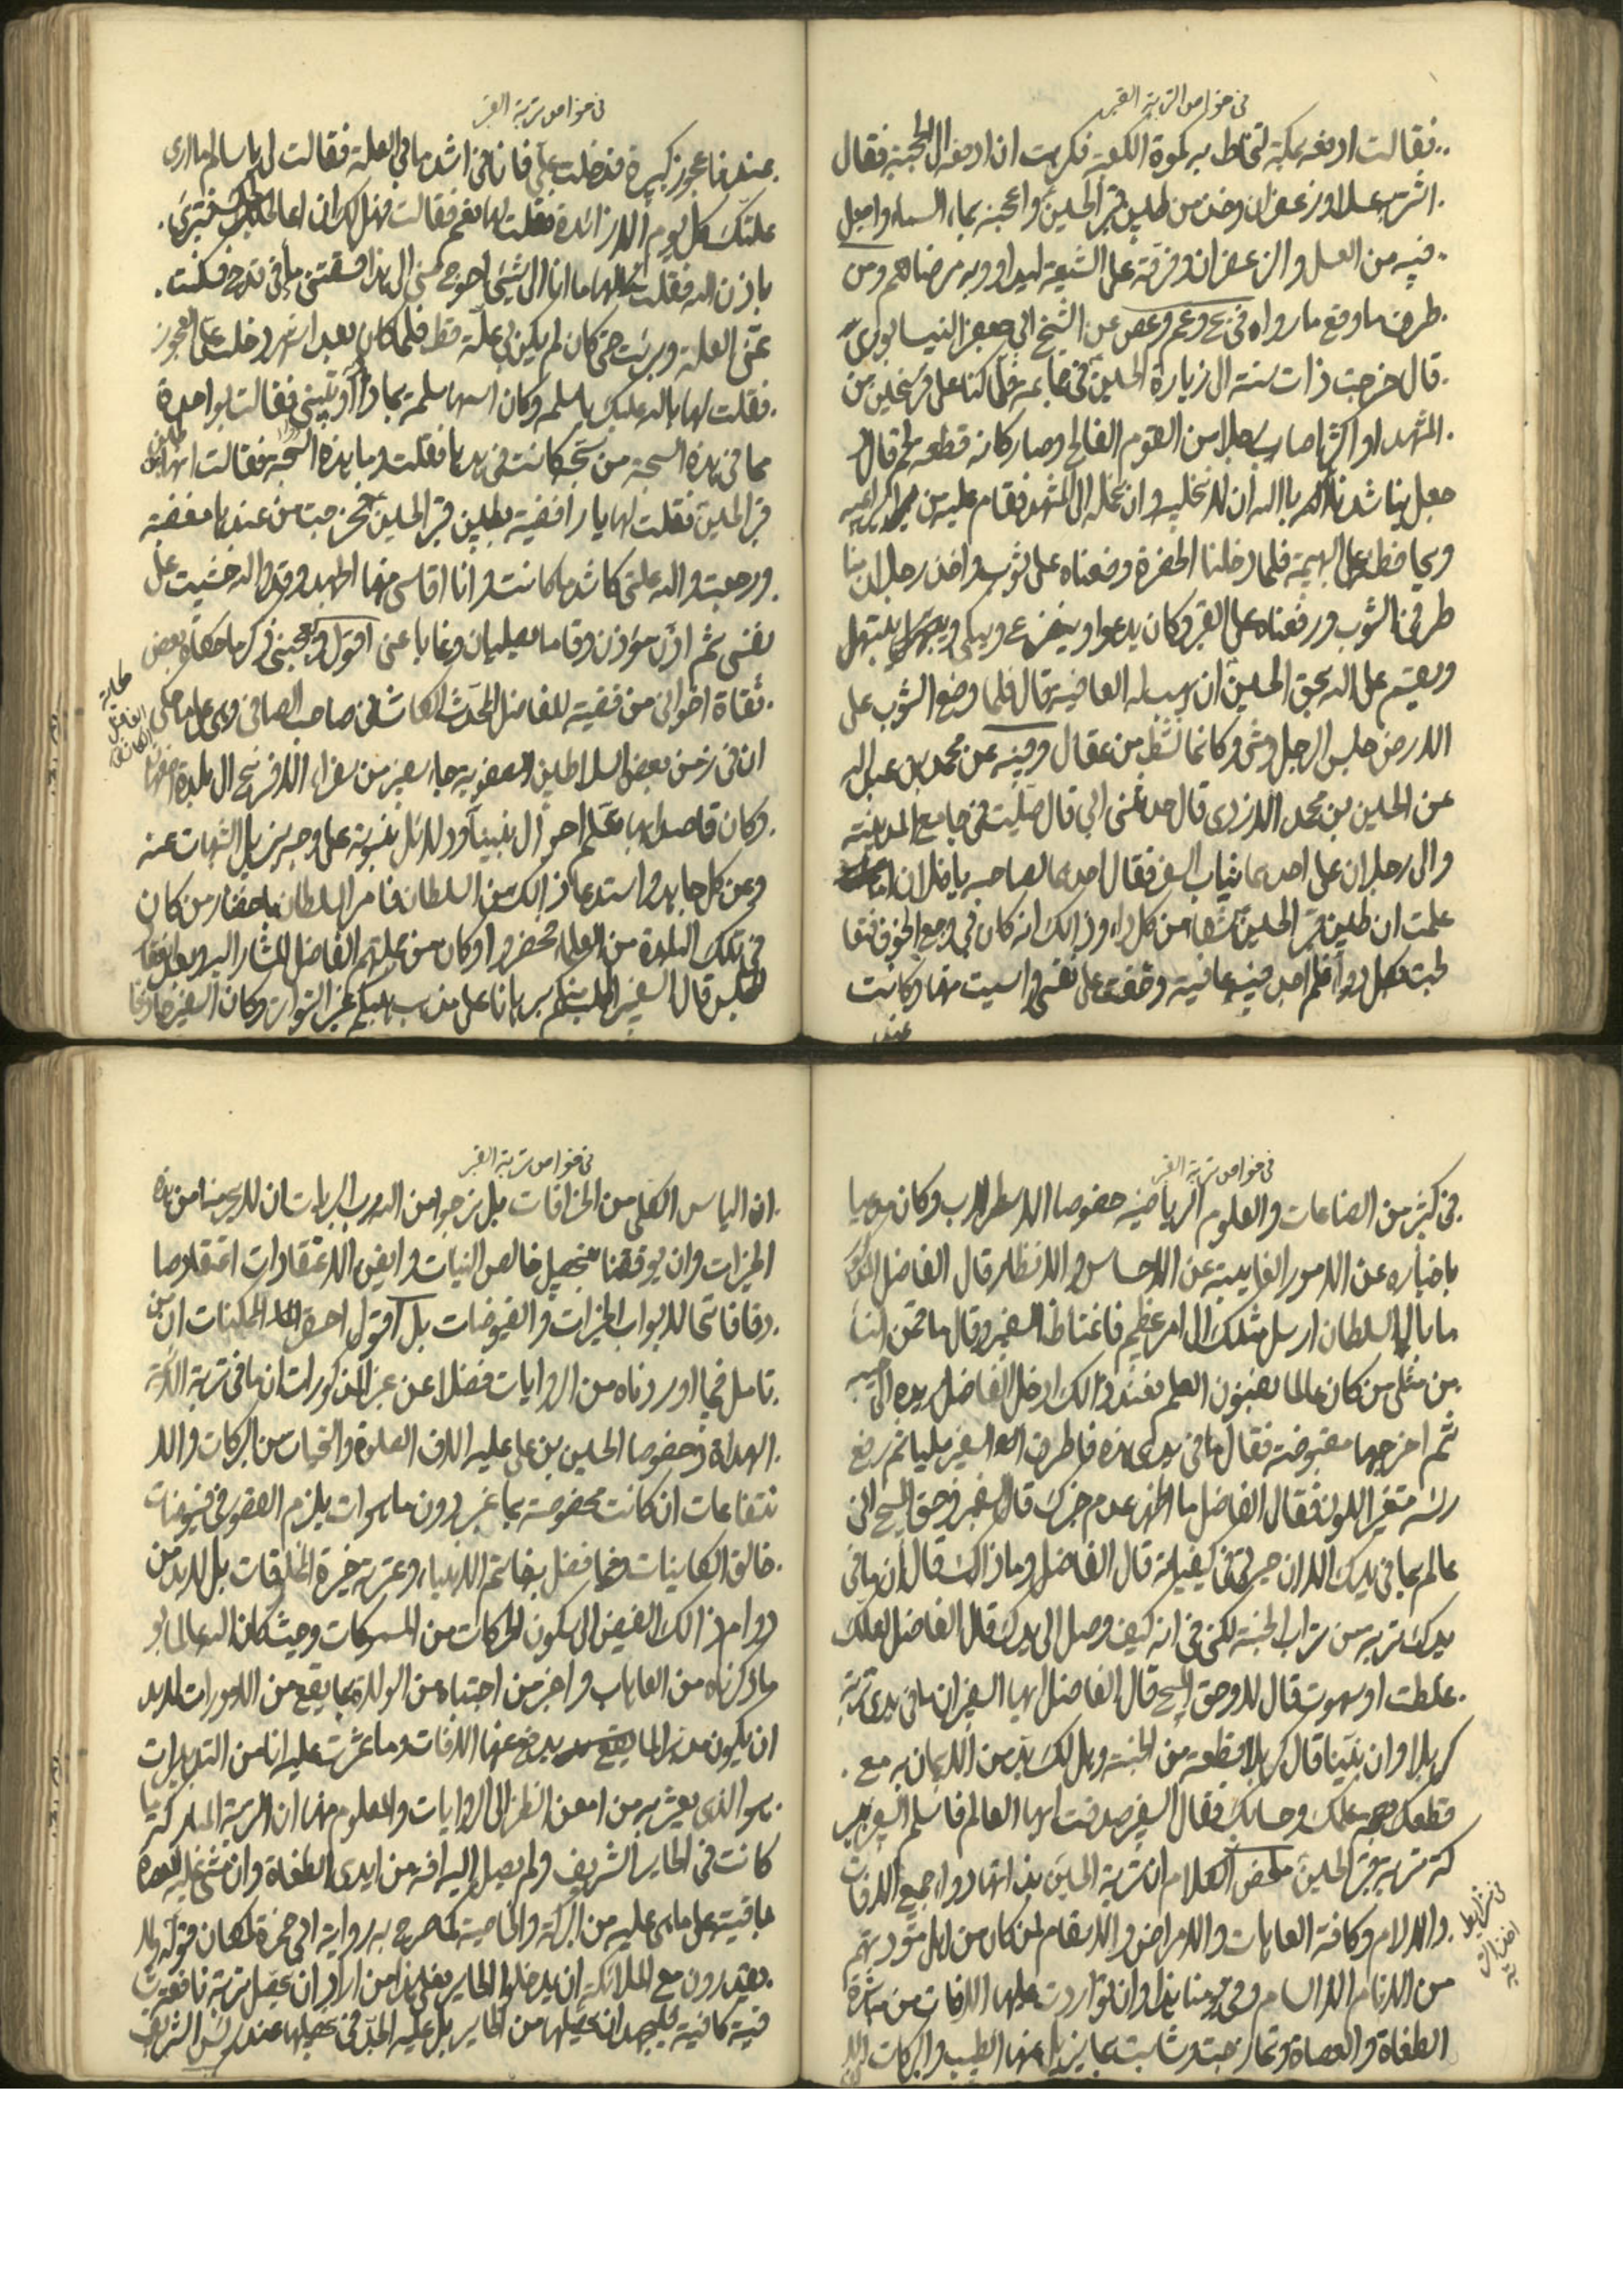 في خواص التربة القبر
فقالت ادفعه بمكة لتخاط به كسوة الكعبة فكرهت ان ادفعه الى الحجبة فقال
اشتر به عسلا وزعفران وخذ من طين قبر الحسين واعجنه بماء السماء واجعل
فيه من العسل والزعفران وفرقه على الشيعة ليداووا به مرضاهم ومن
طرف ما وقع ما رواه في عن الشيخ ابي جعفر النيسابوري
قال خرجت ذات سنة الى زيارة الحسين في جماعة فلما كنا على فرسخين من
المشهد او اكثر اصاب رجلا من القوم الفالج وصار كانه قطعة لحم قال
جعل يناشدنا بالله ان لا نخليه وان نحمله الى المشهد فقام عليه من يراعيه
ويحافظه على البهيمة فلما دخلنا الحضرة وضعناه على ثوب واخذ رجلان منا
طرفي الثوب ورفعناه على القبر وكان يدعوا ويتضرع ويبكي ويبتهل
ويقسم على الله بحق الحسين ان يهب له العافية قال فلما وضع الثوب على
الارض جلس الرجل ومشى وكانما نشط من عقال وفيه عن محمد بن عبد الله
عن الحسين بن محمد الازدي قال حدثني ابي قال صليت في جامع المدينة
والى رجلان على احدهما ثياب السفر فقال احدهما لصاحبه يا فلان اما
علمت ان طين قبر الحسين شفاء من كل داء وذالك انه كان في وجع الجوف فتعا
لجت بكل دواء فلم اجد فيه عافية وخفت على نفسي وايست منها وكانت
عند
في خواص تربة القبر
عندنا عجوز كبيرة فدخلت علي فانا في اشد ما في العلة فقالت لي يا سالم ما ارى
علتك كل يوم الا زائدة فقلت لها نعم فقالت فهل لك ان اعالجك فتبرئ
باذن الله فقلت لها ما انا الى شيئ احوج مني الى هذا فسقتني ماء في قدح فسكنت
عني العلة وبرئت حتى كان لم يكن بي علة قط فلما كان بعد اشهر دخلت علي العجوز
فقلت لها بالله عليك يا سلمه وكان اسمها سلمه بماذا داويتيني فقالت بواحدة
مما في هذه السبحة من سبحة كانت في يدها فقلت وما هذه السبحة فقالت انها من طين
قبر الحسين فقلت لها يا رافضية بطين قبر الحسين فخرجت من عندها مغضبة
ورجعت والله علتي كاشد ما كانت وانا اقاسي منها الجهد وقد والله خشيت على
نفسي ثم اذن مؤذن وقاما يصليان وغابا عني اقول ويعجبني ذكر ما حكاه بعض
ثقاة اخواني من قضية للفاضل المحدث الكاشاني صاحب الصافي وهي على ما حكى
حكاية الفاضل الكاشاني
ان في زمن بعض السلاطين الصفوية جاء سفير من سفراء الافرنج الى بلدة اصفهان
وكان قاصدا بها تعلم احوال نبينا ودلائل نبوته على وجه يزيل الشبهات عنه
وعن كل جاهد واستدعا ذالك من السلطان فامر السلطان باحضار من كان
في تلك البلدة من العلماء فحضروا وكان من جملتهم الفاضل المشار اليه وبعد انعقاد
المجلس قال السفير برهانا على مذهبكم غير التواتر وكان السفير حاذقا
في خواص تربة القبر
في كثير من الصناعات والعلوم الرياضية خصوصا الاسطرلاب وكان مدعيا
باخباره عن الامور الغايبة عن الاحساس والانظار قال الفاضل المذكور
ما بال السلطان ارسل مثلك الى امر عظيم فاغتاظ السفير وقال ما
من مثلي من كان عالما بفنون العلم فعند ذالك ادخل الفاضل يده الى جيبه
ثم اخرجها مقبوضة فقال ما في يدي هذه فاطرق السفير مليا ثم رفع
رأسه متغير اللون فقال الفاضل ما اظهر عدم خبرك قال السفير وحق المسيح اني
عالم بما في يدك الا ان حيرتي في كيفيته قال الفاضل وما ذالك قال ان ما في
يدك تربة من تراب الجنة لكني في انه كيف وصل الى يدك قال الفاضل لعلك
غلطت او سهوت قال لا وحق المسيح قال الفاضل ايها السفير ان ما في يدي تربة
كربلا وان نبينا قال كربلا قطعة من الجنة وهل لك بد من الايمان به مع
قطعك بصحة علمك وحسابك فقال السفير صدقت ايها العالم فاسلم السفير ببر
كة تربة قبر الحسين ملخص الكلام ان تربة الحسين هذا انها دواء جميع الافات
والالام وكافة العاهات والامراض والاسقام لمن كان من اهل مودتهم
في شرايط اخذ التربة
من الانام الا السام وفي يومنا هذا وان تواردت عليها الافات من مباشرة
الطغاة والعصاة وتمازجت وشابت بما يزيل عنها الطيب والبركات الا
في خواص تربة القبر
ان الياس الكلي من الخرافات بل نرجوا من الله رب البريات ان لا يحرمنا من هذه
الخيرات وان يوفقنا بتحصيل خالص النيات وايقن الاعتقادات اعتقادا صا
دقا فاتحا لابواب الخيرات والفيوضات بل اقول احسن الممكنات ان من
تامل فيما اوردناه من الروايات فضلا عن غير المذكورات ان ما في تربة الائمة
الهداة وخصوصا الحسين بن علي عليه الاف الصلوة والتحيات من البركات والا
نتفاعات ان كانت مخصوصة بما غبر دون ما هو ات يلزم القصور في فيوضات
خالق الكاينات فيما فضل بخاتم الانبياء وعترته خيرة المخلوقات بل لا بد من
دوام ذالك الفيض الى سكون الحركات من المسموكات وحيث كان الله عالما بو
ما ذكرناه من العاهات واخبر من اجتباه من الولاة بما يقع من الامورات لا بد
ان يكون مدبرا لما يدفع عنها الافات وما عثرت عليه انا من التدبيرات
هو الذي يعثر به من امعن النظر الى الروايات والمعلوم منها ان التربة المباركة ما
كانت في الحاير الشريف ولم يصل اليه افة من ايدي الطغاة وان مشى عليه العصاة
باقية على ما هي عليه من البركة والخاصية كما صرح به رواية ابي حمزة لمكان قوله ولا
يقدرون مع الملائكة ان يدخلوا الحاير فعلى هذا من اراد ان يحصل تربة نافعة
فية كافية فليجهد ان يحصلها من الحاير بل عليه الجد في تحصيلها عند رأس الشريف